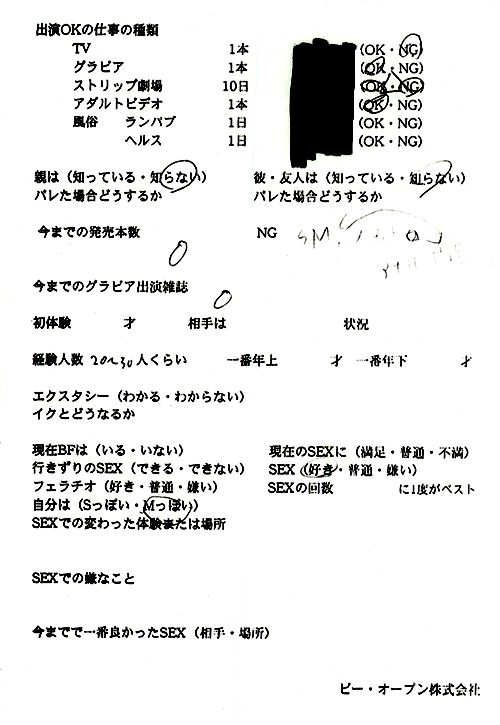 出演OKの仕事の種類
TV 1本 (OK・NG)
グラビア 1本 (OK・NG)
ストリップ劇場 10日 (OK・NG)
アダルトビデオ 1本 (OK・NG)
風俗 ランパブ 1日 (OK・NG)
ヘルス 1日 (OK・NG)
親は (知っている・知らない) 彼・友人は (知っている・知らない)
バレた場合どうするか バレた場合どうするか
今までの発売本数 0 NG SM
今までのグラビア出演雑誌 0
初体験 才 相手は 状況
経験人数 20〜30人くらい 一番年上 才 一番年下 才
エクスタシー (わかる・わからない)
イクとどうなるか
現在BFは (いる・いない) 現在のSEXに (満足・普通・不満)
行きずりのSEX (できる・できない) SEX (好き・普通・嫌い)
フェラチオ (好き・普通・嫌い) SEXの回数 に1度がベスト
自分は (Sっぽい・Mっぽい)
SEXでの変わった体験または場所
SEXでの嫌なこと
今までで一番良かったSEX (相手・場所)
ビー・オープン株式会社